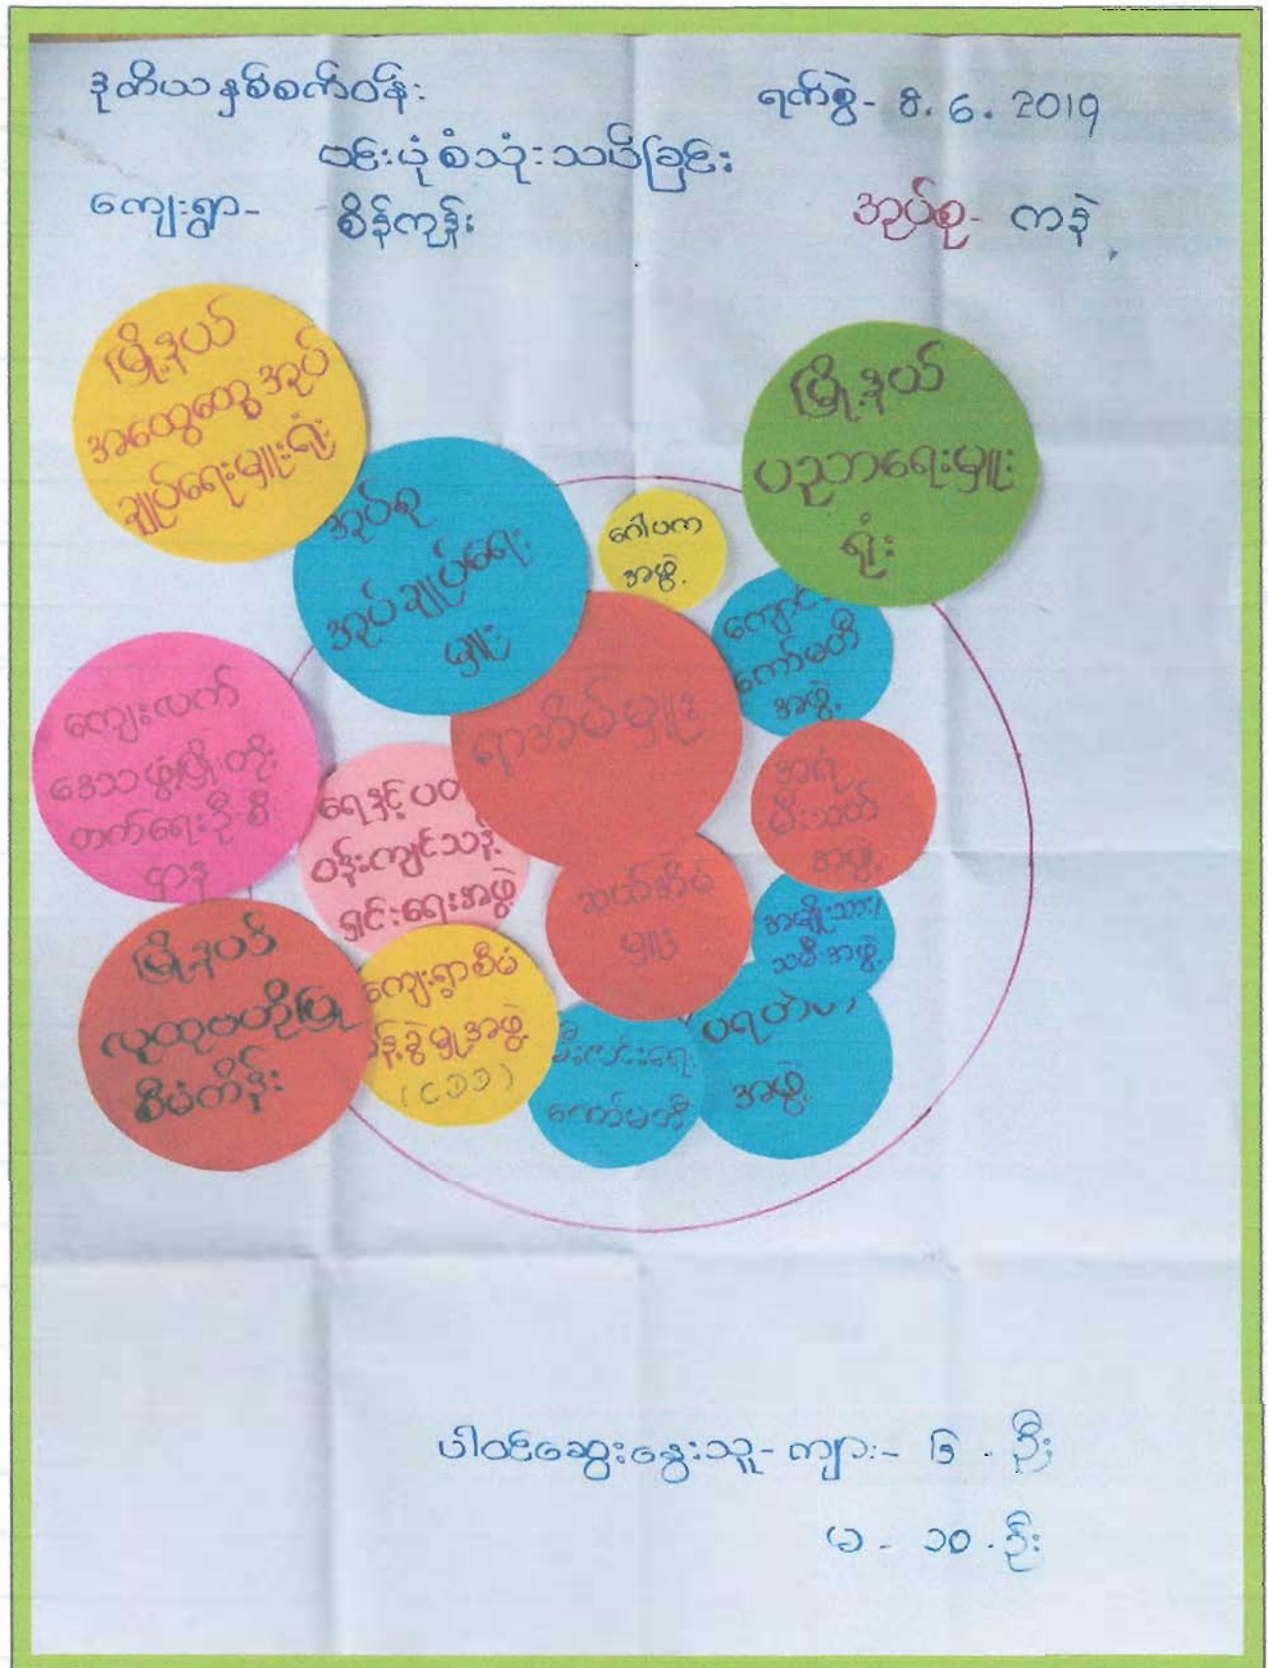 ဒုတိယနှစ်စက်ဝန်း
ရက်စွဲ- 8. 6. 2019
ဗင်းပုံစံသုံးသပ်ခြင်း
ကျေးရွာ- စိန်ကုန်း
အုပ်စု- ကနဲ
မြို့နယ်
အထွေထွေအုပ်
ချုပ်ရေးမှူးရုံး
မြို့နယ်
ပညာရေးမှူး
ရုံး
အုပ်စု
အုပ်ချုပ်ရေး
မှူး
ဂေါပက
အဖွဲ့
ကျောင်း
ကော်မတီ
အဖွဲ့
ရာအိမ်မှူး
ကျေးလက်
ဒေသဖွံ့ဖြိုးတိုး
တက်ရေးဦးစီး
ဌာန
ရေနှင့်ပတ်
ဝန်းကျင်သန့်
ရှင်းရေးအဖွဲ့
အရံ
မီးသတ်
အဖွဲ့
ဆယ်အိမ်
မှူး
အမျိုးသား/
သမီးအဖွဲ့
မြို့နယ်
လူထုဗဟိုပြု
စီမံကိန်း
ကျေးရွာစီမံ
ခန့်ခွဲမှုအဖွဲ့
(CDD)
မီးလင်းရေး
ကော်မတီ
ပရဟိတ
အဖွဲ့
ပါဝင်ဆွေးနွေးသူ- ကျား- ၆ - ဦး
မ - ၁၀ - ဦး